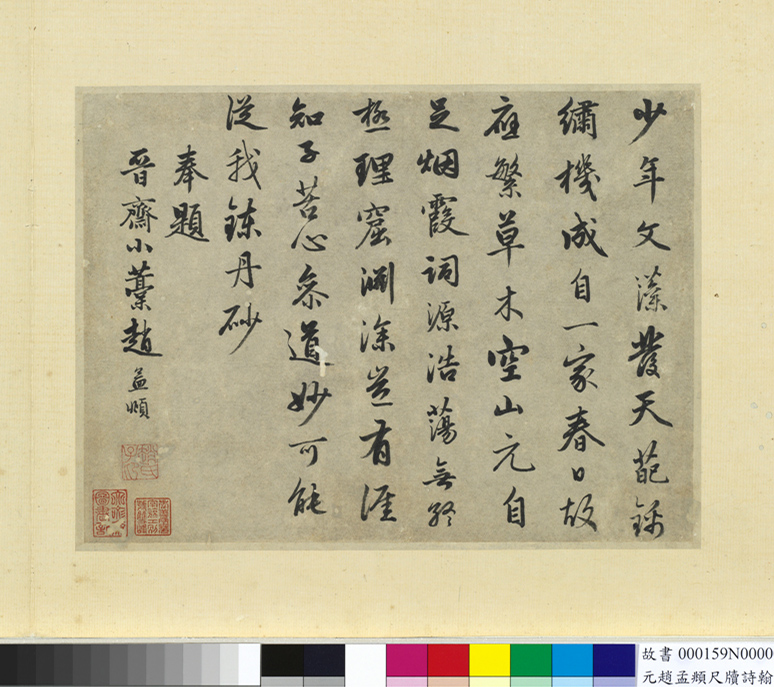 少年文藻發天葩錦
繡機成自一家春日故
應繁草木空山元自
足烟霞詞源浩蕩無終
極理窟淵深豈有涯
知子苦心叅道妙可能
從我鍊丹砂
奉題
晉齋小藁趙孟頫
趙氏子昂
故書 000159N0000
元趙孟頫尺牘詩翰